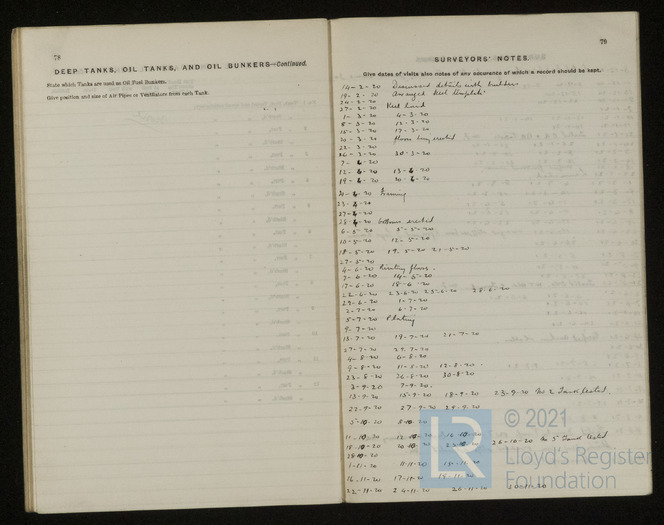 78
DEEP TANKS, OIL TANKS, AND OIL BUNKERS—Continued.
State which Tanks are used as Oil Fuel Bunkers.
Give position and size of Air Pipes or Ventilators from each Tank.
79
SURVEYORS' NOTES.
Give dates of visits also notes of any occurence of which a record should be kept.
14-2-20 Discussed details with builders
19-2-20 Arranged Keel Template
24-2-20
27-2-20 Keel laid
1-3-20 4-3-20
8-3-20 12-3-20
15-3-20 17-3-20
20-3-20 floors being erected
22-3-20
26-3-20 30-3-20
7-4-20
12-4-20 13-4-20
19-4-20 20-4-20
21-4-20 Framing
23-4-20
27-4-20
28-4-20 erected
6-5-20 5-5-20
10-5-20 12-5-20
18-5-20 19-5-20 21-5-20
27-5-20
4-6-20 Riveting floors.
7-6-20 14-6-20
17-6-20 18-6-20
22-6-20 23-6-20 25-6-20 28-6-20
29-6-20 1-7-20
2-7-20 6-7-20
5-7-20 Plating
9-7-20
13-7-20 19-7-20 21-7-20
27-7-20 29-7-20
4-8-20 6-8-20
9-8-20 11-8-20 12-8-20
23-8-20 26-8-20 30-8-20
3-9-20 7-9-20.
13-9-20 15-9-20 18-9-20 23-9-20 No 2 Tank tested.
22-9-20 27-9-20 29-9-20
5-10-20 8-10-20
11-10-20 12-10-20 14-10-20
18-10-20 20-10-20 25-10-20 26-10-20 No 5 Tank tested
28-10-20
1-11-20 11-11-20 15-11-20
16-11-20 17-11-20 19-11-20
22-11-20 24-11-20 26-11-20 30-11-20
© 2021
LR
Lloyd's Register
Foundation